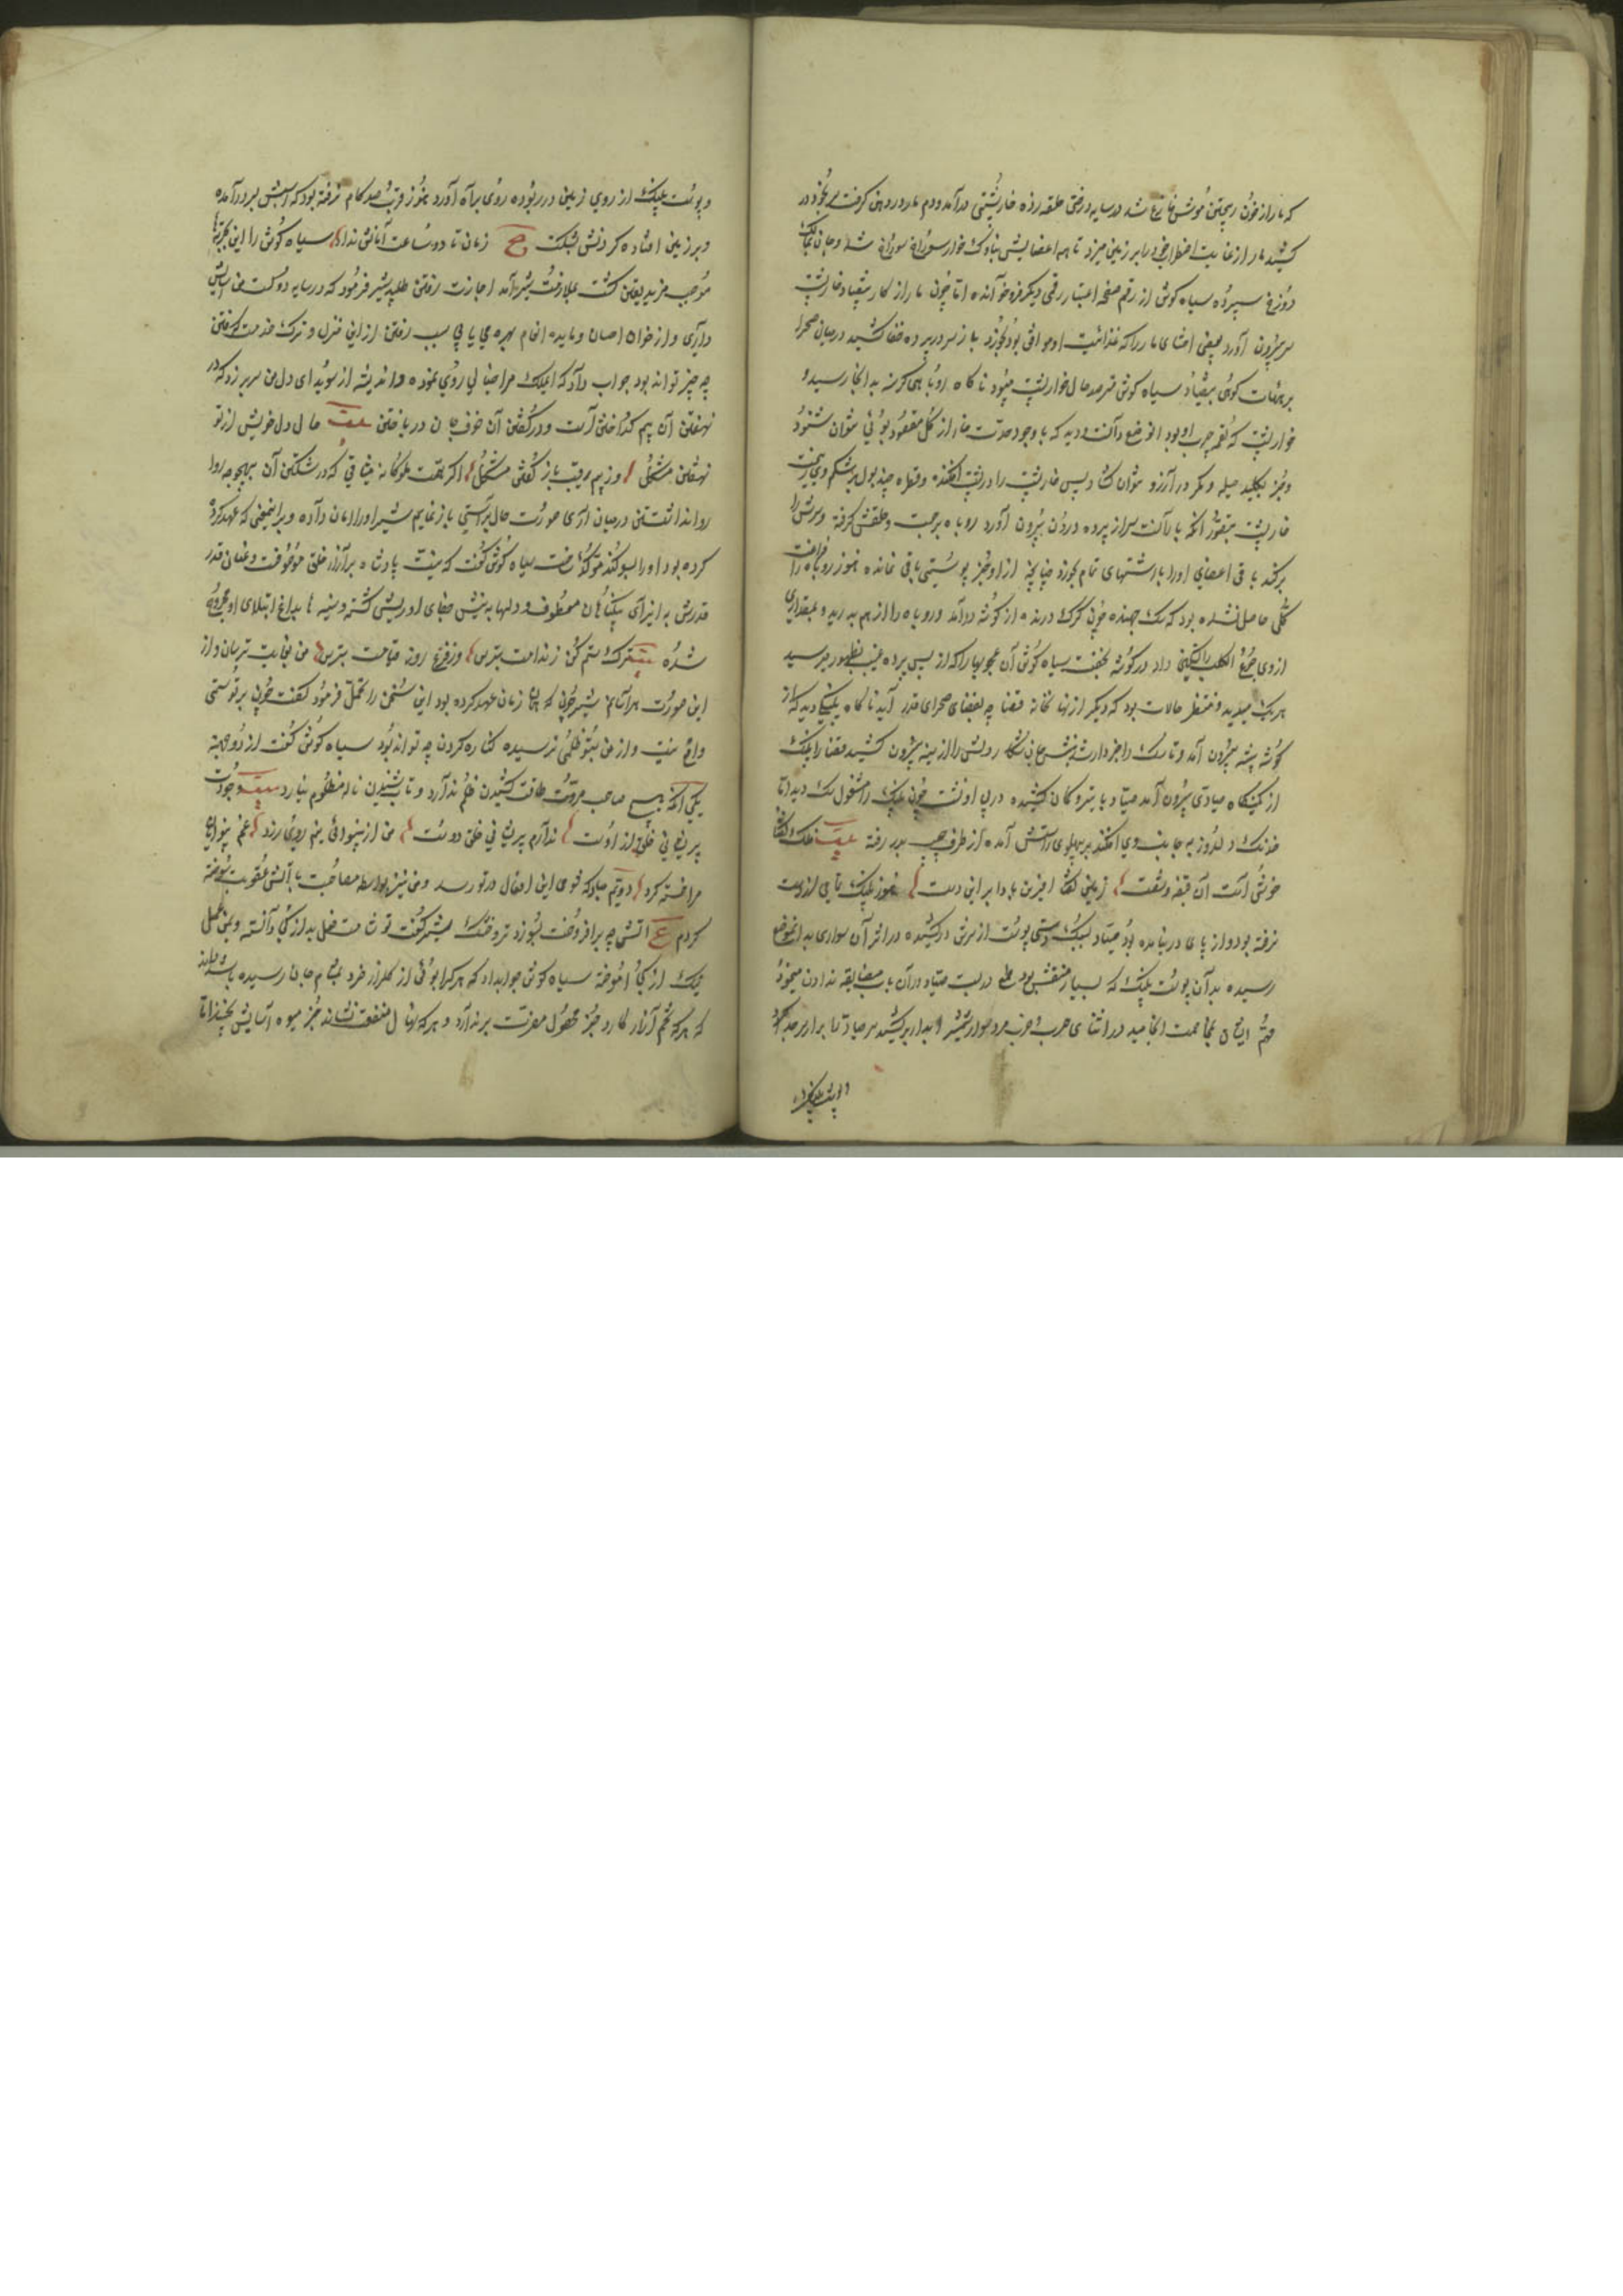 که مار از خون ریختن موش فارغ شد در سایه درختی حلقه زده خارپشتی درآمد و دم مار در دهن گرفت سر بخود در
کشید مار از غایت اضطراب خود را بر زمین میزد تا همه اعضایش بنوک خار سوراخ سوراخ شد و جان بمالک
دوزخ سپرده سیاه گوش از رقم صفحه اعتبار رقمی دیگر فروخواند اما چون مار از کار بیفتاد خارپشت
سر بیرون آورد بعضی احشای مار را که غذائیت او موافق بود بخورد باز سر در پرده خفا کشید در میان صحرا
بر هیئات گوئی بیفتاد سیاه گوش مترصد حال خارپشت میبود ناگاه روباهی گرسنه بدانجا رسید و
خارپشت که لقمه چرب او بود وضع دانست و دید که با وجود حدت خار از گل مقصود بوئی نتوان شنود
و جز بکلید حیله و مکر در آرزو نتوان گشاد پس خارپشت را در پشت افکنده و قطره چند بول بر شکم وی ریخت
خارپشت بتصور آنکه بارانست سر از پرده درون بیرون آورد روباه برجست و حلقش گرفته و سرش را
برکند باقی اعضای او را باشتهای تمام بخورد چنانچه از او جز پوستی باقی نمانده هنوز روباه را فراغت
کلی حاصل نشده بود که سک جهنده چون گرگ درنده از گوشه درآمد و روباه را از هم بدرید و بمقداری
از وی جوع الکلب را تسکین داد در گوشه بخفت سیاه گوش آن عجوبها را که از پس پرده غیب بظهور میرسید
هر یک میدید و منتظر حالات بود که دیگر از نهانخانه قضا چه بفضای صحرای قدر آید ناگاه پلنگی دید که از
گوشه بیشه بیرون آمد و تا سک را خبر دار شد بچنگ جان شکار دلش را از سینه بیرون کشید قضا را پلنک
از کمینگاه صیادی بیرون آمد صیاد با تیر و کمان کشیده در پی او نشست چون پلنک را مشغول سک دید تا
خدنک دلدوز بجانب وی افکند بر پهلوی راستش آمده از طرف چپ بدر رفته بیت فلک گفتا
خوش است آن قبضه و شست زمین گفت آفرین بادا بر این دست هنوز پلنک تا پی از دست
نرفته بود و از پای در نیامده بود صیاد بسبک دستی پوست از سرش درکشیده در اثر آن سواری بدان موضع
رسیده بدان پوست پلنک که بسیار منقش بود طمع دربست صیاد در آن باب مضایقه ندادن میجنود
مهم ایشان بمخاصمت انجامید در اثنای حرب و ضرب مرد سوار شمشیر آبدار برکشید سر صیاد را بر آن سر صد بکرد
و پوست پلنک را
و پوست پلنک از روی زمین در ربوده روی براه آورد هنوز قرب صد کام نرفته بود که اسپش بسر درآمده
و بر زمین افتاده گردنش بشکست ع زمان تا دو ساعت امانش نداد سیاه گوش را این تجربها
موجب مزید یقین گشت بملازمت شیر آمد اجازت رفتن طلبید شیر فرمود که در سایه دولت من آسایش
داری و از خوان احسان و مایده انعام بهره می یابی سبب رفتن از این منزل و ترک خدمت گفتن
چه چیز تواند بود جواب داد که ایملک مرا خیالی روی نموده و اندیشه از سویدای دل من سر برزده که در
نهفتن آن بیم گداختن است و در گفتن آن خوف جان در باختن بیت حال دل خویش از تو
نهفتن مشکل وز بیم رقیب باز گفتن مشکل اگر بهمت ملوکانه میثاقی که در شکستن آن بهیچوجه روا
روا نداشتی در میان آری صورت حال براستی باز نمایم شیر او را امان داده و بر این معنی که عهد کرد
کرده بود او را بسوکند مؤکد ساخت سیاه گوش گفت که نیت پادشاه بر آزار خلق موقوفست و عنان قدر
قدرش بایذای بیگناهان معطوف و دلها به نیش جفای او ریش گشته و سینها بداغ ابتلای او مجروح
شده بیت ترک ستم کن ز ندامت بترس وز فزع روز قیامت بترس من بغایت ترسان و از
این صورت هراسانم شیر چون که بتازگی زمان عهد کرده بود این سخن را تحمل فرمود گفت چون بر تو ستمی
واقع نیست و از من بتو ظلمی نرسیده کناره کردن چه تواند بود سیاه گوش گفت از دو جهة
یکی آنکه هیچ صاحب مروت طاقت کشیدن ظلم ندارد و تاب شنیدن ناله مظلوم نیارد بیت وجودت
پریشانی خلق از اوست ندارم پریشانی خلق دوست من از بینوائی نیم روی زرد غم بینوایان
مرا خسته کرد دویم مبادا که شومی این افعال در تو رسد و من نیز بواسطه مصاحبت بآتش عقوبت سوخته
گردم ع آتش چو برافروخت بسوزد تر و خشک شیر گفت تو شامت فعل بد از کجا دانسته و یمن عمل
نیک از کجا آموخته سیاه گوش جواب داد که هر کرا بوئی از گلزار خرد بمشام جان رسیده باشد میداند
که هر که تخم آزار کارد جز محصول مضرت بر ندارد و هر که نهال منفعت نشاند جز میوه آسایش نچیند اما